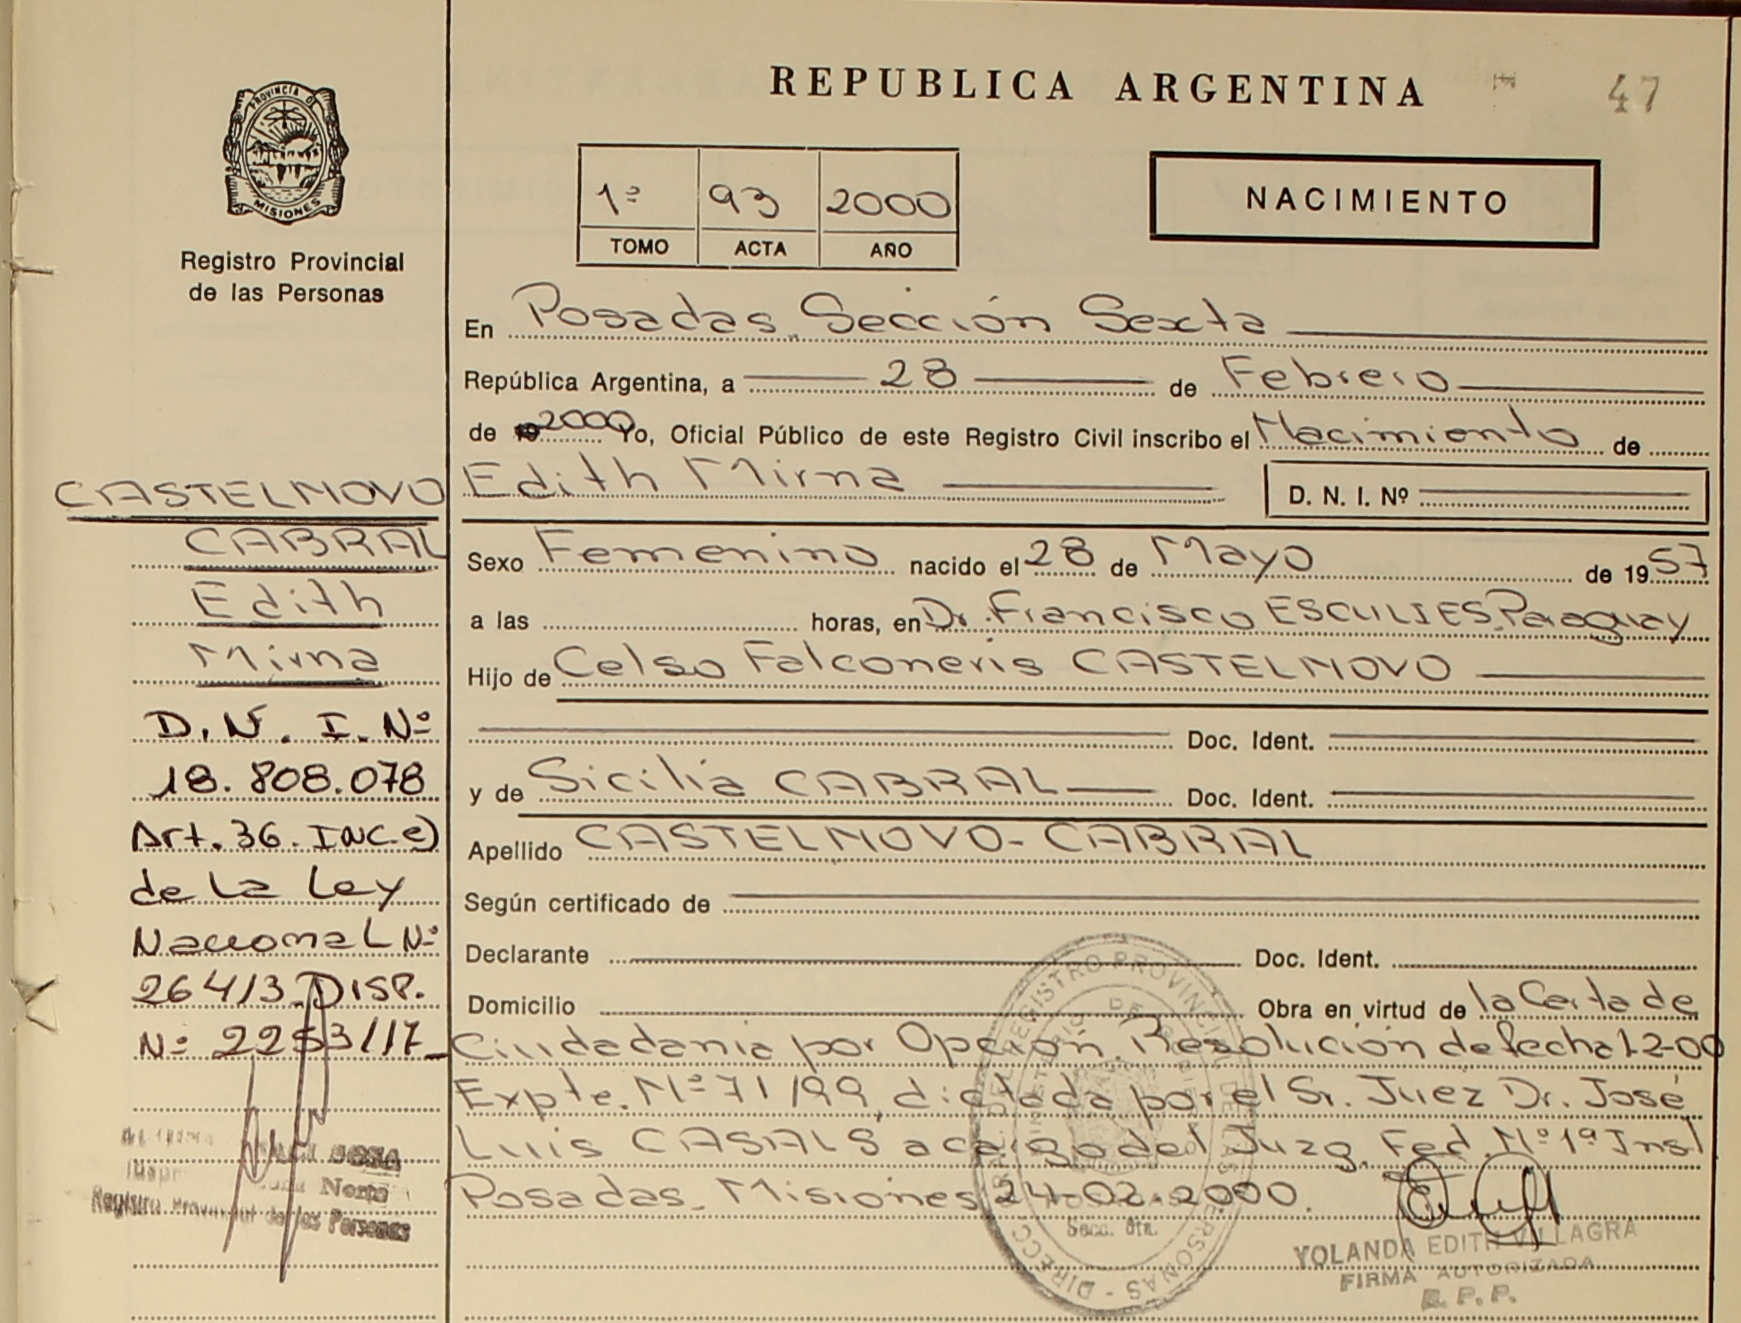 REPUBLICA ARGENTINA
47
PROVINCIA DE
MISIONES
Registro Provincial
de las Personas
1º 93 2000
TOMO ACTA AÑO
NACIMIENTO
En Posadas Sección Sexta
República Argentina, a 28 de Febrero
de 19 2000 Yo, Oficial Público de este Registro Civil inscribo el Nacimiento de
Edith Mirna D. N. I. Nº
Sexo Femenino nacido el 28 de Mayo de 19 57
a las horas, en Dr. Francisco ESCULIES Paraguay
Hijo de Celso Falconeris CASTELNOVO
Doc. Ident.
y de Sicilia CABRAL Doc. Ident.
Apellido CASTELNOVO - CABRAL
Según certificado de
Declarante Doc. Ident.
Domicilio Obra en virtud de la Carta de
Ciudadania por Opción. Resolución de fecha 1-2-00
Expte. Nº 71/99, dictada por el Sr. Juez Dr. José
Luis CASALS a cargo del Juzg. Fed. Nº 1º Inst.
Posadas. Misiones 24-02-2000.
CASTELNOVO
CABRAL
Edith
Mirna
D. N. I. Nº
18.808.078
Art. 36. INC. e)
de La Ley
Nacional Nº
26413. DISP.
Nº 2253/17
SOSA
Norte
Registro Provincial de las Personas
DIRECC. REGISTRO PROVINCIAL DE LAS PERSONAS
MINISTERIO DE GOBIERNO
Secc. 6ta.
YOLANDA EDITH VILLAGRA
FIRMA AUTORIZADA
R. P. P.